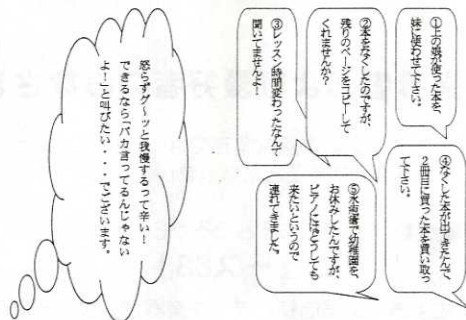 ①上の娘が使った本を、
妹に使わせて下さい。
②本をなくしたのですが、
残りのページをコピーして
くれませんか?
③レッスン時間変わったなんて
聞いてませんよ!
④なくした本が出てきたんで、
2冊目に買った本を買い取っ
て下さい。
⑤水疱瘡で幼稚園を、
お休みしたんですが、
ピアノにはどうしても
来たいというので
連れてきました。
怒らずグ~ッと我慢するって辛い!
できるなら「バカ言ってるんじゃない
よ!」と叫びたい・・・でございます。